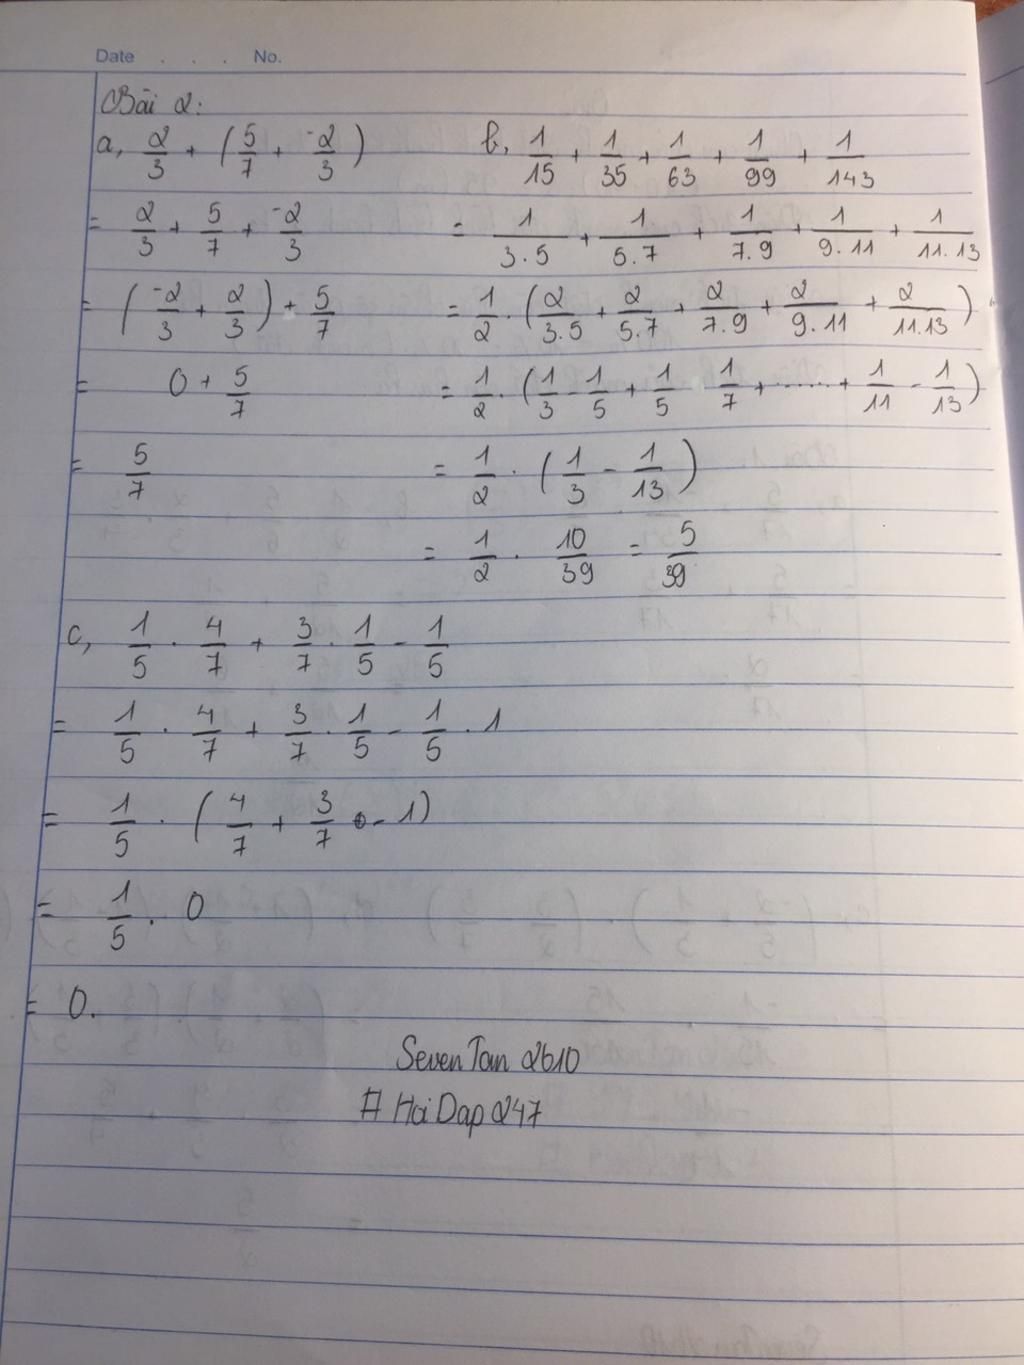 Date . . . No.
Bài 2:
a, 2/3 + (5/7 + -2/3)
= 2/3 + 5/7 + -2/3
= (-2/3 + 2/3) + 5/7
= 0 + 5/7
= 5/7
b, 1/15 + 1/35 + 1/63 + 1/99 + 1/143
= 1/3.5 + 1/5.7 + 1/7.9 + 1/9.11 + 1/11.13
= 1/2 . (2/3.5 + 2/5.7 + 2/7.9 + 2/9.11 + 2/11.13)
= 1/2 . (1/3 - 1/5 + 1/5 - 1/7 + ...... + 1/11 - 1/13)
= 1/2 . (1/3 - 1/13)
= 1/2 . 10/39 = 5/39
c, 1/5 . 4/7 + 3/7 . 1/5 - 1/5
= 1/5 . 4/7 + 3/7 . 1/5 - 1/5 . 1
= 1/5 . (4/7 + 3/7 - 1)
= 1/5 . 0
= 0.
SevenTam 2610
# HoiDap247